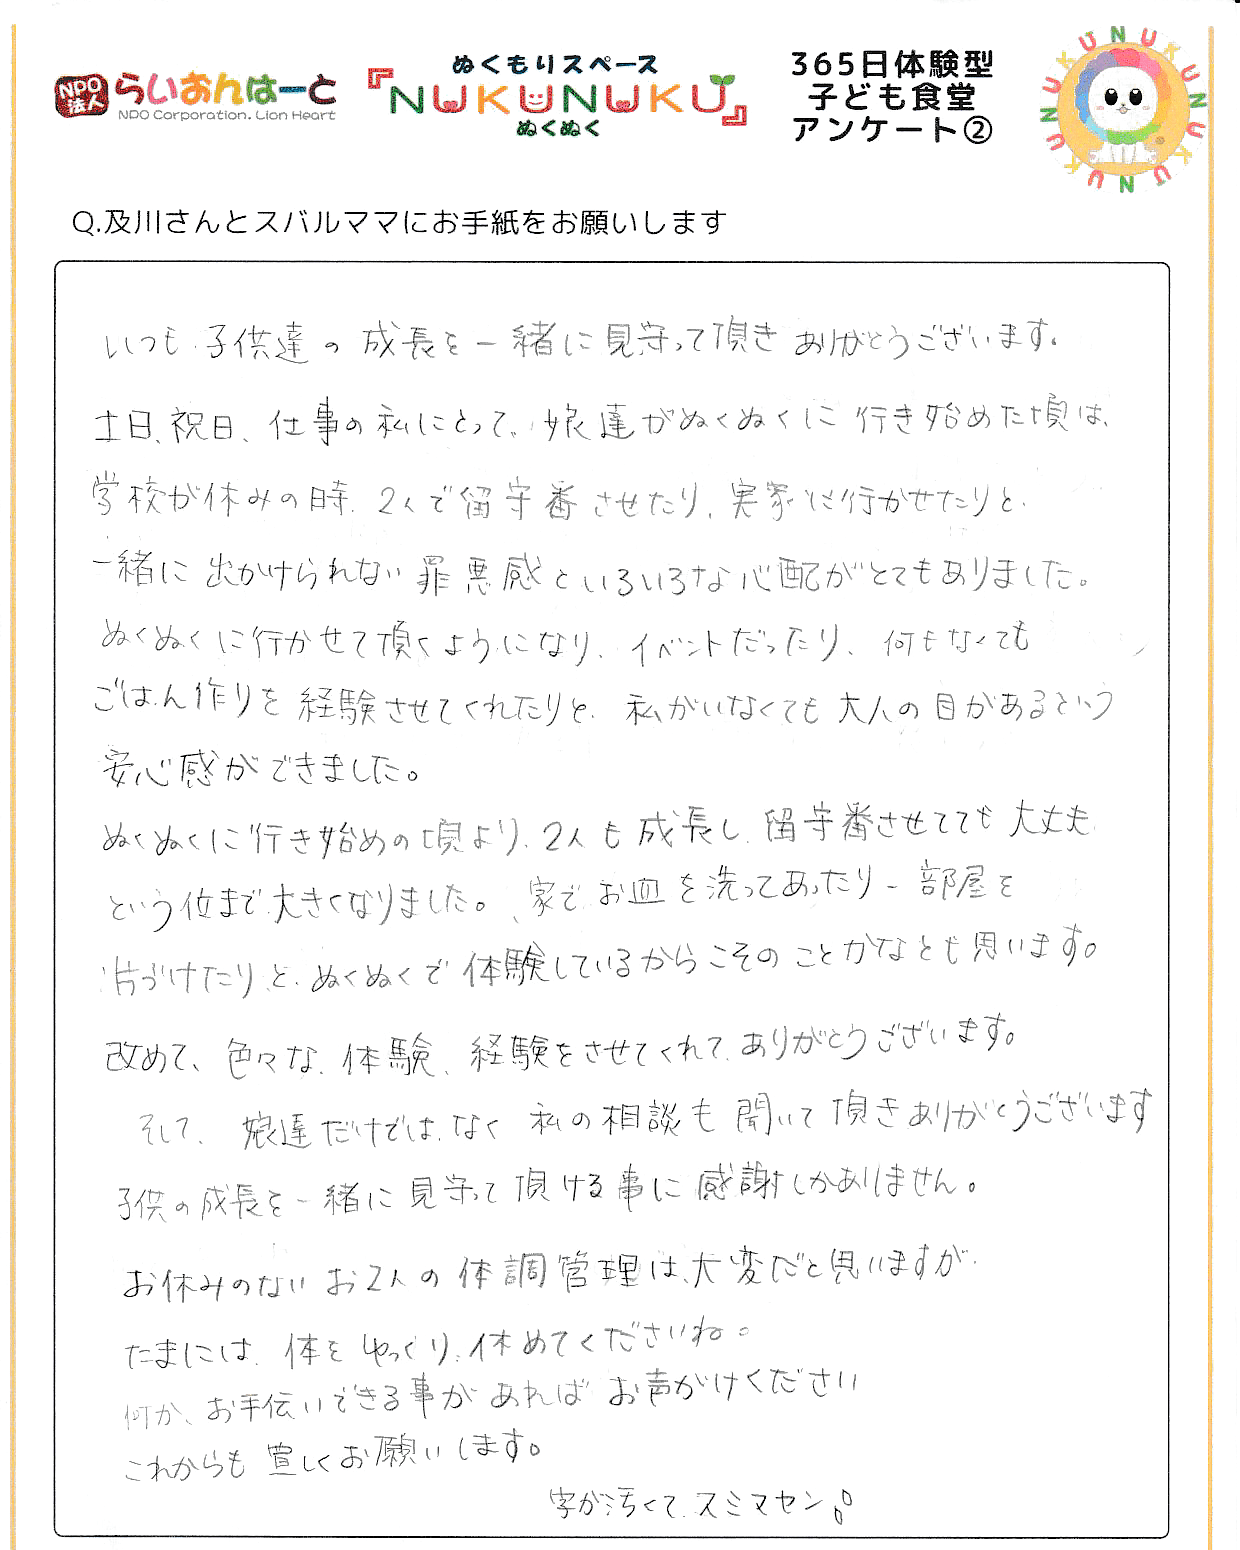 NDO法人 らいおんはーと
NDO Corporation. Lion Heart
ぬくもりスペース
『NUKUNUKU』
ぬくぬく
365日体験型
子ども食堂
アンケート②
NUKUNUKU NUKUNUKU
Q.及川さんとスバルママにお手紙をお願いします
いつも子供達の成長を一緒に見守って頂きありがとうございます。
土日、祝日、仕事の私にとって、娘達がぬくぬくに行き始めた頃は、
学校が休みの時、2人で留守番させたり、実家に行かせたりと、
一緒に出かけられない罪悪感といろいろな心配がとてもありました。
ぬくぬくに行かせて頂くようになり、イベントだったり、何もなくても
ごはん作りを経験させてくれたりと、私がいなくても大人の目があるという
安心感ができました。
ぬくぬくに行き始めの頃より、2人も成長し、留守番させてても大丈夫
という位まで大きくなりました。家でお皿を洗ってあったり、部屋を
片づけたりと、ぬくぬくで体験しているからこそのことかなとも思います。
改めて、色々な体験、経験をさせてくれて、ありがとうございます。
そして、娘達だけではなく私の相談も聞いて頂きありがとうございます
子供の成長を一緒に見守って頂ける事に感謝しかありません。
お休みのないお2人の体調管理は、大変だと思いますが、
たまには、体をゆっくり、休めてくださいね。
何か、お手伝いできる事があればお声がけください
これからも宜しくお願いします。
字が汚くて、スミマセン